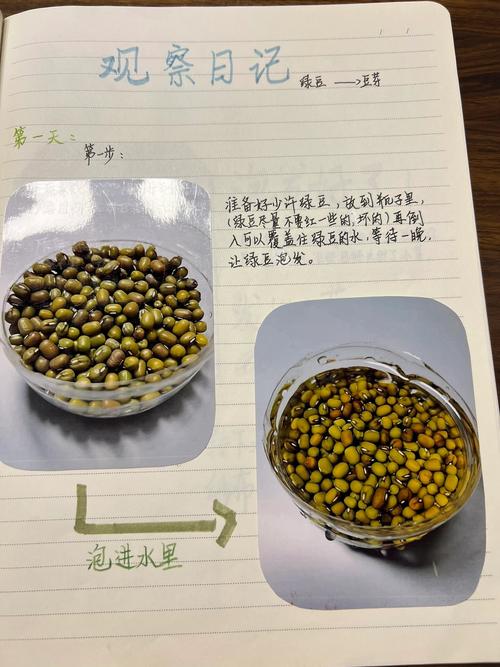 观察日记
绿豆 →豆芽
第一天:
第一步:
准备好少许绿豆，放到瓶子里，
(绿豆尽量不要红一些的,坏的)再倒
入可以覆盖住绿豆的水,等待一晚,
让绿豆泡发。
泡进水里